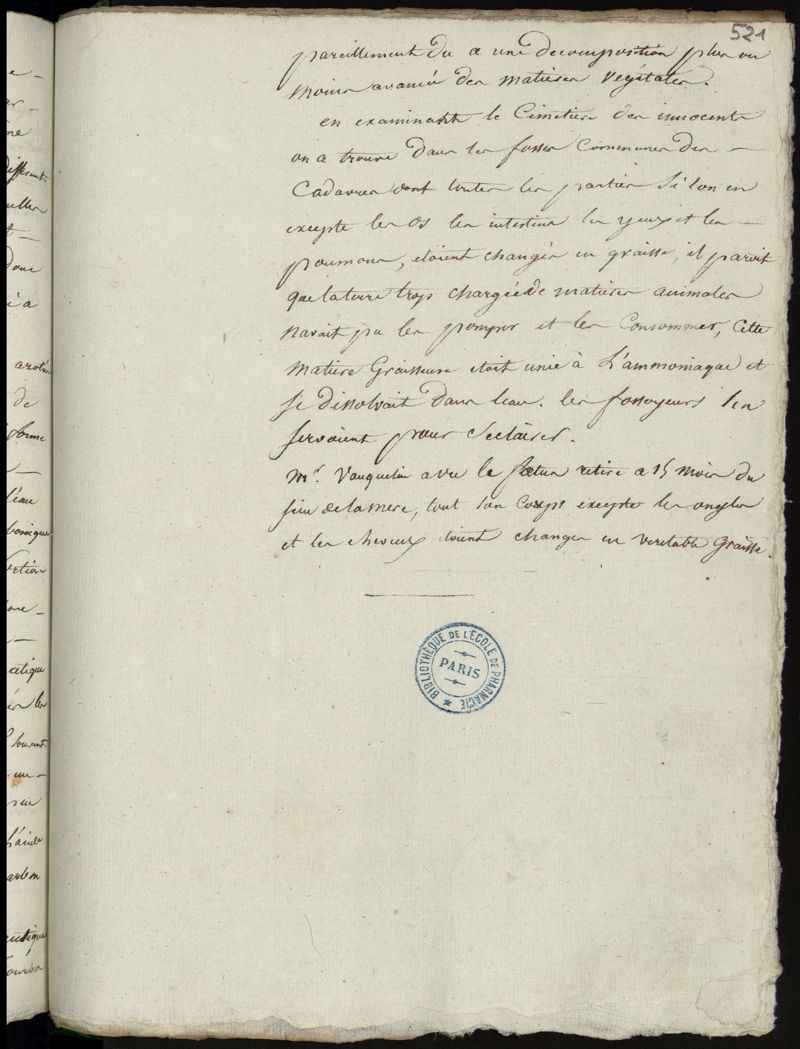 521
pareillement du a une decomposition plus ou
moins avancée des matieres vegétales.
en examinant le Cimetiere des innocents
on a trouvé dans les fosses Communes des —
Cadavres dont toutes les parties Si l'on en
excepte les os les intestins les yeux et les —
poumons, etoient changés en graisse, il paroit
que la terre trop chargée de matieres animales
navait pu les pomper et les Consommer, Cette
matiere Graisseuse etoit unie à L'ammoniaque et
se dissolvait dans leau. les fossoyeurs s'en
servoient pour S'eclairer.
Mr. Vauquelin a vu le fœtus retire a 15 mois du
sein de la mere, tout son Corps excepté les ongles
et les cheveux etoient changés en veritable Graisse.
BIBLIOTHÈQUE DE L'ÉCOLE DE PHARMACIE
PARIS
donc
à
de
forme
l'eau
atique
souvent
arbon